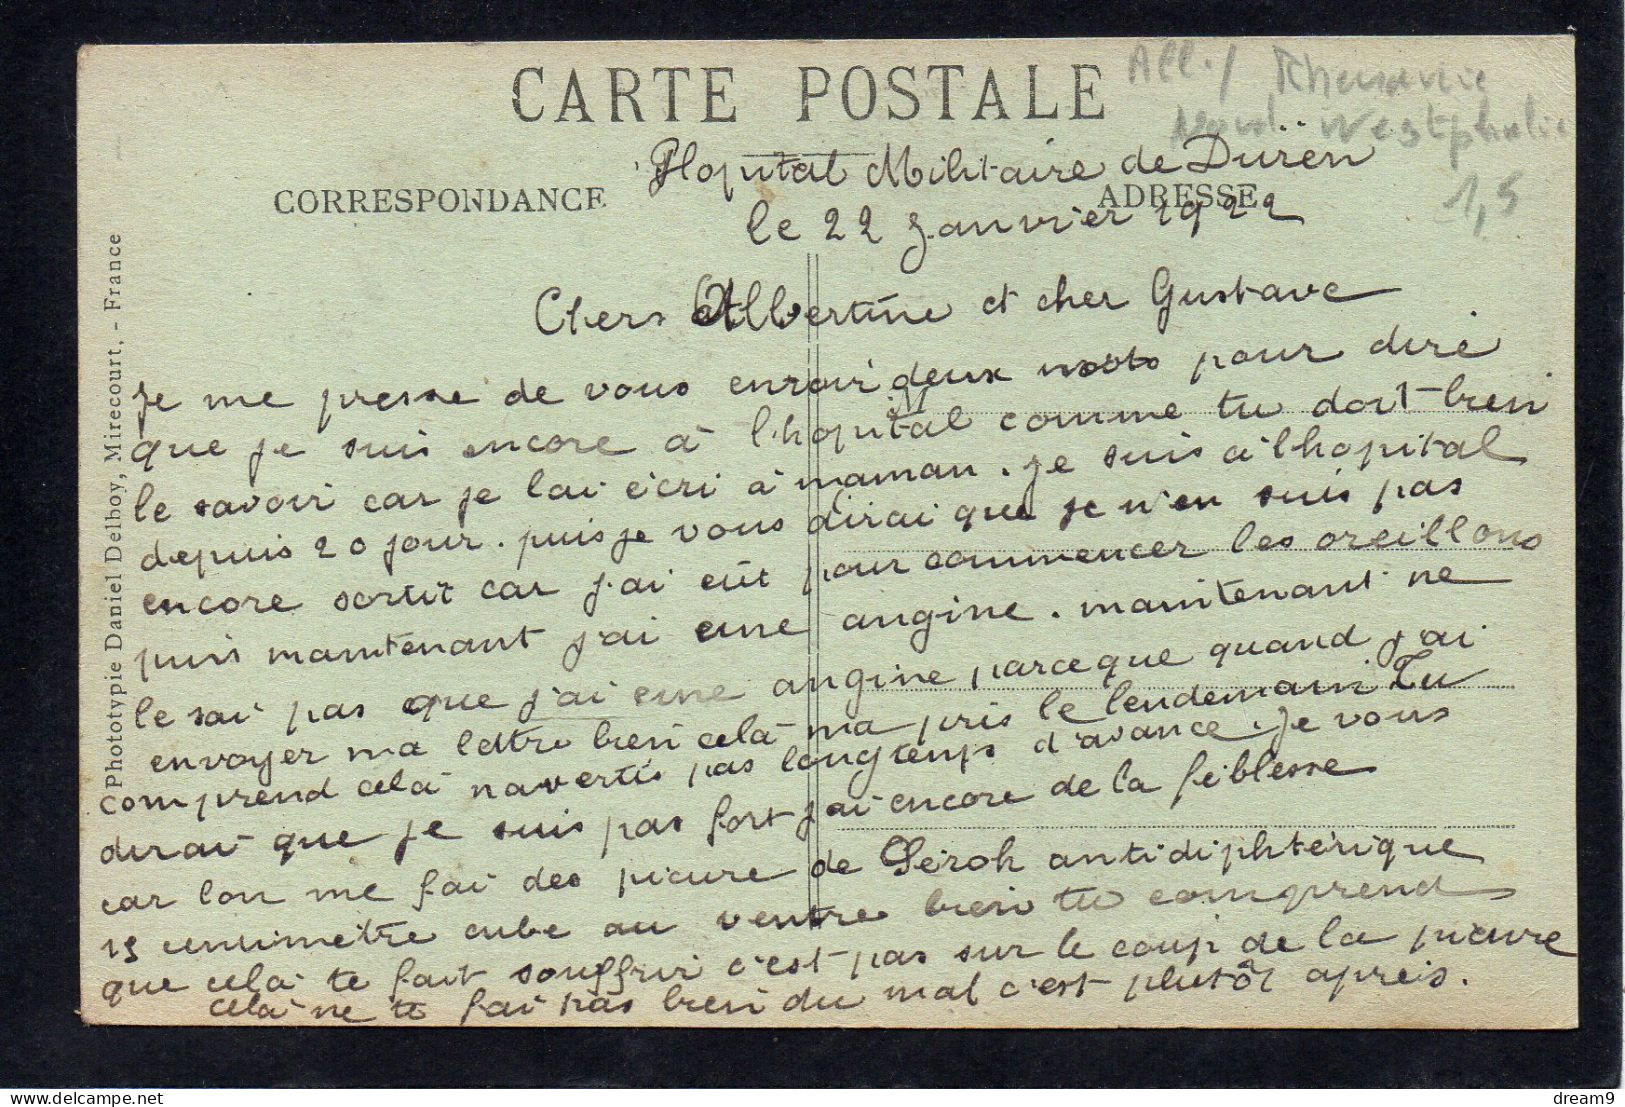 CARTE POSTALE
All. / Rhenanie
Nord Westphalie
1,5
Hopital Militaire de Düren
CORRESPONDANCE
ADRESSE
le 22 Janvier 1922
Chers Albertine et cher Gustave
je me presse de vous envoir deux mots pour dire
que je suis encore à l'hopital comme tu doit bien
le savoir car je lai écri à maman. je suis à lhopital
depuis 20 jour. puis je vous dirai que je n'en suis pas
encore sortit car j'ai eût pour commencer les oreillons
puis maintenant j'ai une angine. maintenant ne
le sai pas que j'ai une angine parceque quand j'ai
envoyer ma lettre bien celà ma pris le lendemain Tu
comprend celà navertis pas longtemps d'avance. je vous
dirai que je suis pas fort j'ai encore de la feiblesse
car lon me fai des picure de Séroh antidiphtérique
15 centimètre cube au ventre bien tu comprend
que celà te fait souffrir c'est pas sur le coup de la picure
celà ne te fai pas bien du mal c'est plutôt apreis.
Phototypie Daniel Delboy, Mirecourt. - France
https://www.delcampe.net
dream9